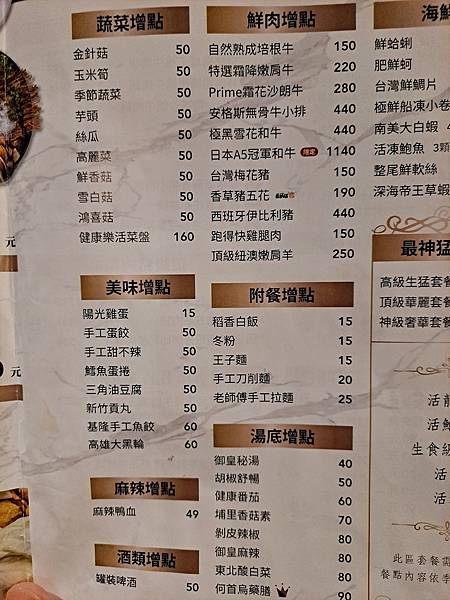 蔬菜增點
金針菇 50
玉米筍 50
季節蔬菜 50
芋頭 50
絲瓜 50
高麗菜 50
鮮香菇 50
雪白菇 50
鴻喜菇 50
健康樂活菜盤 160
美味增點
陽光雞蛋 15
手工蛋餃 50
手工甜不辣 50
鱈魚蛋捲 50
三角油豆腐 50
新竹貢丸 50
基隆手工魚餃 60
高雄大黑輪 60
麻辣增點
麻辣鴨血 49
酒類增點
罐裝啤酒 50
鮮肉增點
自然熟成培根牛 150
特選霜降嫩肩牛 220
Prime霜花沙朗牛 280
安格斯無骨牛小排 440
極黑雪花和牛 440
日本A5冠軍和牛 限定 1140
台灣梅花豬 150
香草豬五花 190
西班牙伊比利豬 440
跑得快雞腿肉 150
頂級紐澳嫩肩羊 250
附餐增點
稻香白飯 15
冬粉 15
王子麵 15
手工刀削麵 20
老師傅手工拉麵 25
湯底增點
御皇秘湯 40
胡椒舒暢 50
健康番茄 60
埔里香菇素 70
剝皮辣椒 80
御皇麻辣 80
東北酸白菜 80
何首烏藥膳 90
海鮮
鮮蛤蜊
肥鮮蚵
台灣鮮鯛片
極鮮船凍小卷
南美大白蝦 4
活凍鮑魚 3顆
整尾鮮軟絲
深海帝王草蝦
最神猛
高級生猛套餐
頂級華麗套餐
神級奢華套餐
活
活
生食級
活
活
此區套餐需
餐點內容依季
元
元